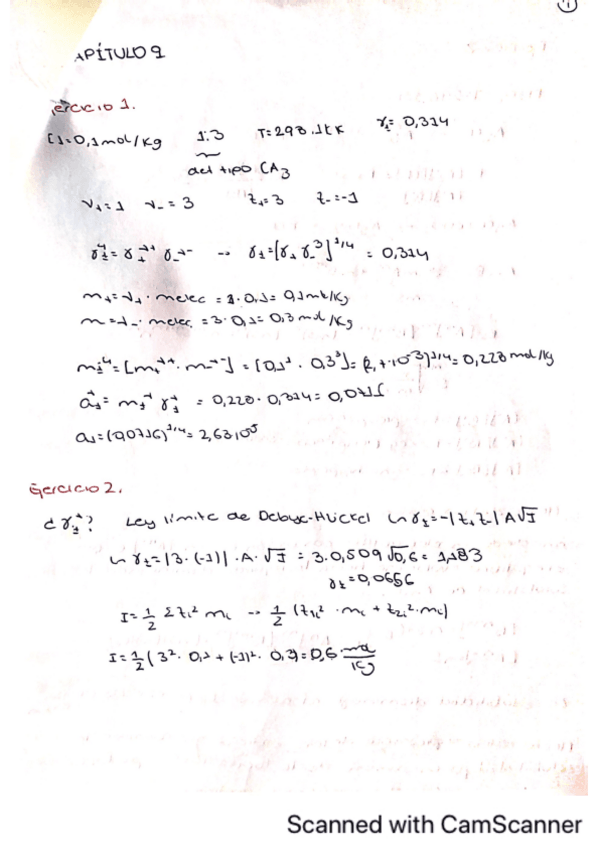 1
APÍTULO 9
jercicio 1.
[ ]=0,1mol/Kg 1:3 T=298.1K K γ±= 0,314
del tipo CA3
ν+=1 ν-=3 z+=3 z-=-1
γ±⁴= γ+^ν+ γ-^ν- → γ±=[γ+ γ-³]^1/4 = 0,314
m+=ν+ · melec = 1·0,1= 0,1mol/Kg
m-=ν- · melec = 3·0,1= 0,3 mol/Kg
m±⁴=[m+^ν+ · m-^ν-] = (0,1¹ · 0,3³)= (2,7·10⁻³)^1/4= 0,228 mol/Kg
a±= m± γ± = 0,228·0,314= 0,0715
a±=(0,0716)^1/4= 2,63·10⁵
Ejercicio 2.
¿ γ±? Ley límite de Debye-Hückel ln γ±=-|z+ z-| A√I
ln γ±=|3·(-1)|·A·√I = 3·0,509 √0,6= 1,183
γ±=0,0656
I=1/2 Σ zi² mi → 1/2 (z1i² · mi + z2i² · mi)
I=1/2 (3²· 0,1 + (-1)²· 0,3)=0,6 mol/Kg
Scanned with CamScanner